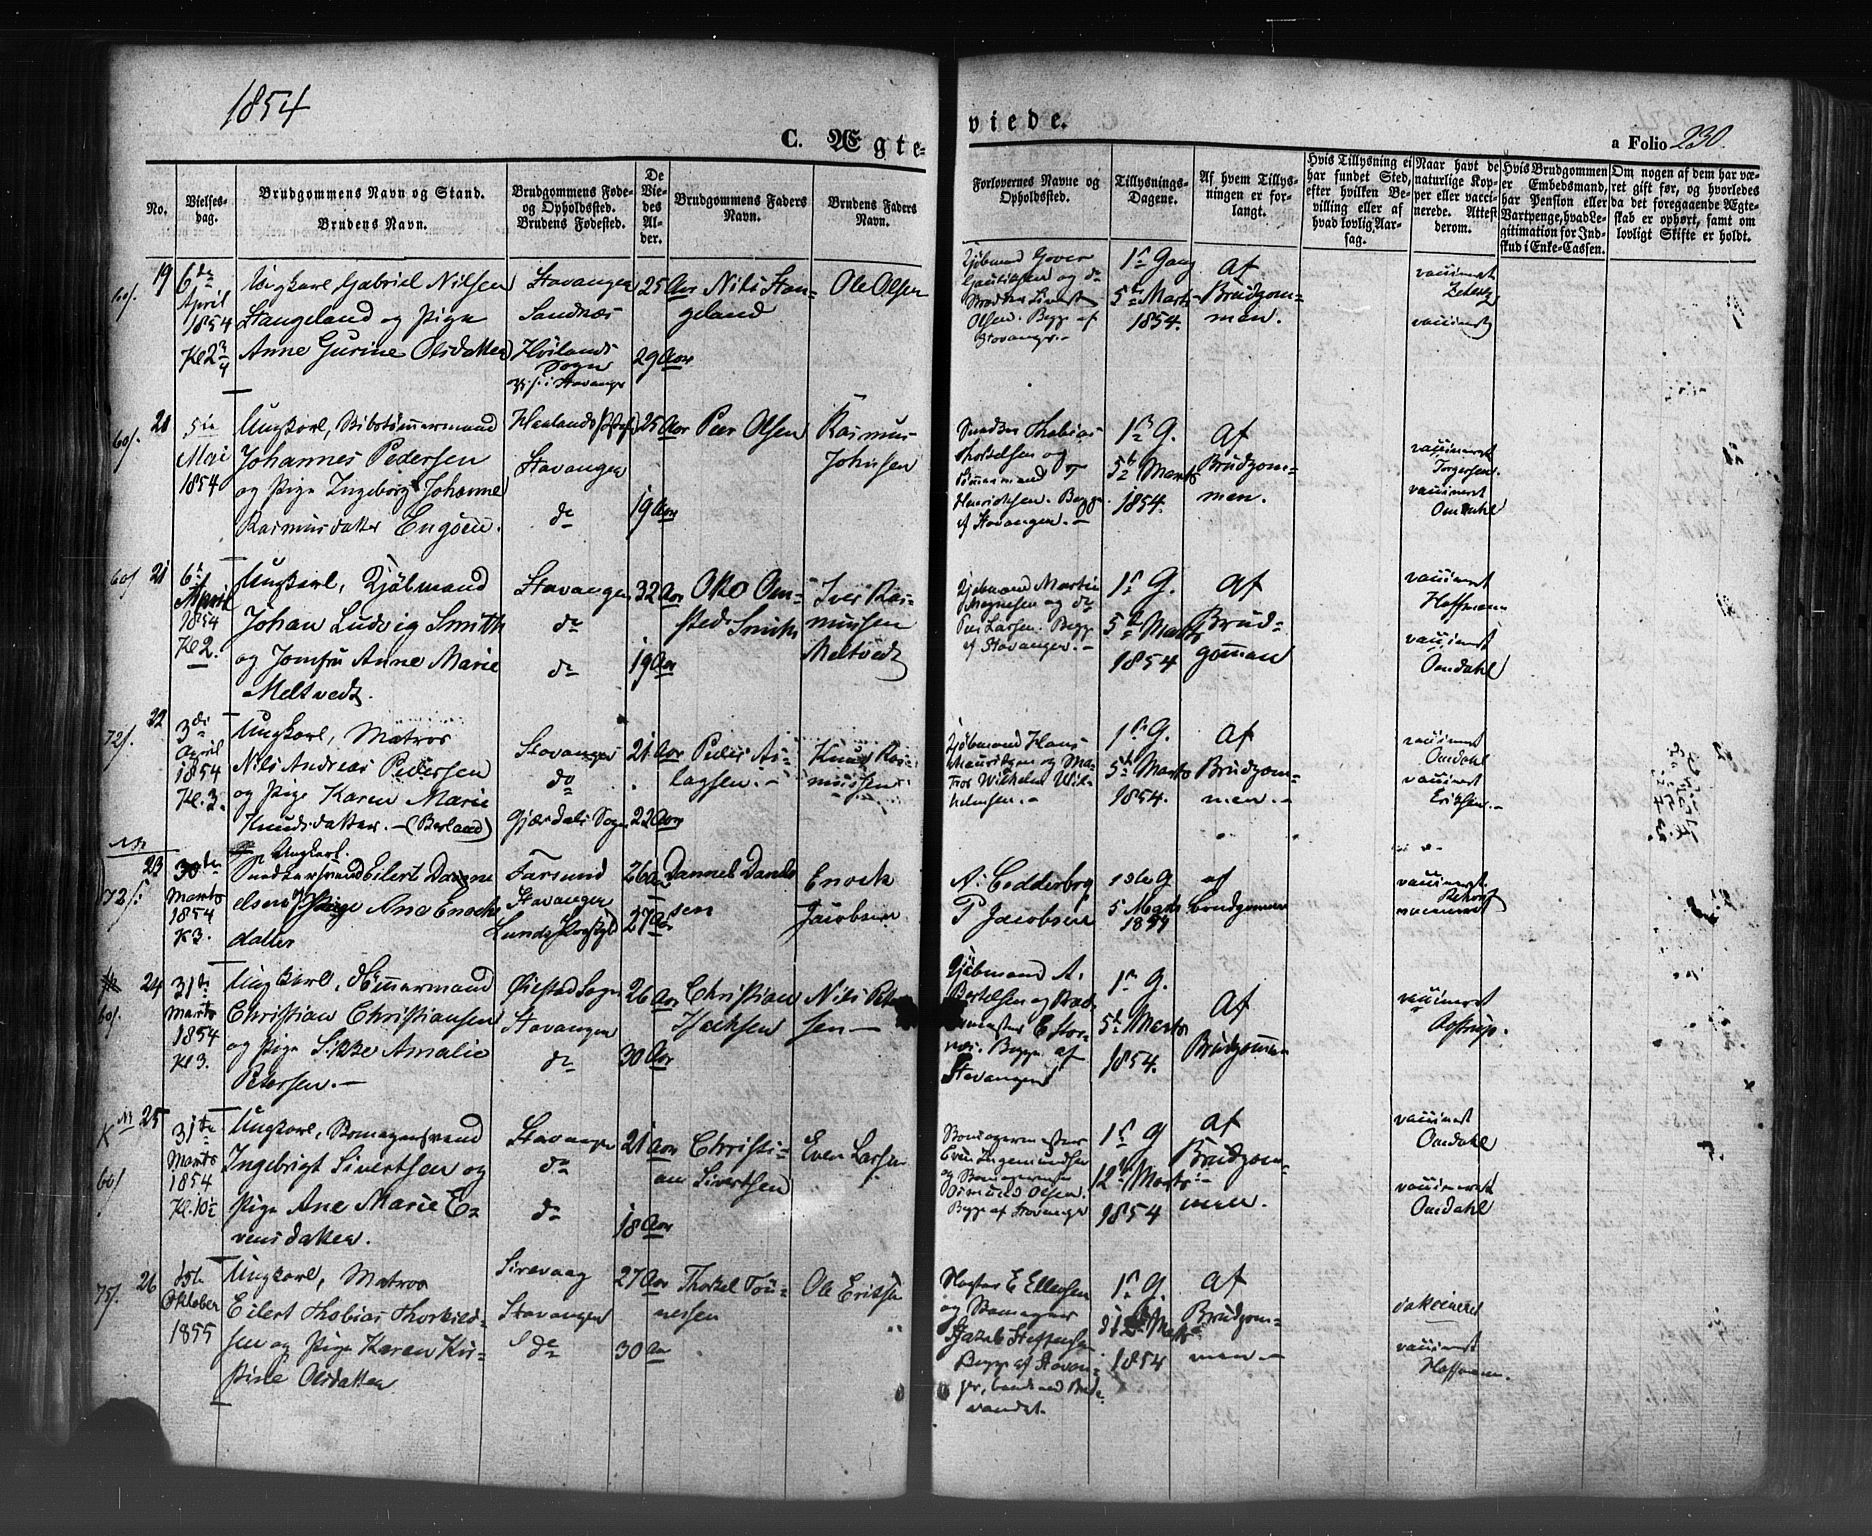 1854
C. Ægte-
viede.
a Folio 230.
No.
Vielses-
dag.
Brudgommens Navn og Stand.
Brudens Navn.
Brudgommens Føde-
og Opholdssted.
Brudens Fødested.
De
Vie-
des
Al-
der.
Brudgommens Faders
Navn.
Brudens Faders
Navn.
Forlovernes Navne og
Opholdssted.
Tillysnings-
Dagene.
Af hvem Tillys-
ningen er for-
langt.
Hvis Tillysning ei
har fundet Sted,
efter hvilken Be-
villing eller af
hvad lovlig Aar-
sag.
Naar havt de
naturlige Kop-
per eller vacci-
nerede. Attest
derom.
Hvis Brudgommen
er Embedsmand,
har Pension eller
Vartpenge, hvad Le-
gitimation for Ind-
skud i Enke-Cassen.
Om nogen af dem har væ-
ret gift før, og hvorledes
da det foregaaende Ægte-
skab er ophørt, samt om
lovligt Skifte er holdt.
60/. 19
6te
April
1854
Kl 2 3/4
Ungkarl Gabriel Nilsen
Stangeland og Pige
Anne Gurine Olsdatter
Stavanger
Sandnæs
Sogn
i Stavanger
25 Aar
29 Aar
Nils Stan-
geland
Ole Olsen
Kjøbmand
og do
Olsen. Begge af
Stavanger.-
1ste Gang
5te Marts
1854.
Af
Brudgom-
men.
vaccineret
vaccineret
60/.
5te
Mai
1854
Ungkarl,
Johannes Pedersen
og Pige Ingeborg Johanne
Rasmusdatter Engøen.
Stavanger
do
25 Aar
19 Aar
Peer Olsen
Rasmus
Johnsen
Thobias
Thorkelsen og
Henrichsen. Begge
af Stavanger.-
1ste G.
5te Marts
1854.
Af
Brudgom-
men.
vaccineret
Torgersen.
vaccineret
Omdahl
60/ 21
6te
April
1854
Kl 2.
Ungkarl, Kjøbmand
Johan Ludvig Smith
og Jomfru Anne Marie
Meltvedt.
Stavanger
do
do
32 Aar
19 Aar
Otto Om-
sted Smith
Iver Ras-
mussen
Meltvedt
Kjøbmand Martin
Magnesen og do
Peer Larsen. Begge
af Stavanger.-
1ste G.
5te Marts
1854
Af
Brud-
gommen
vaccineret
Hoffmann
vaccineret
Omdahl
72/. 22
3die
April
1854
Kl. 3.
Ungkarl, Matros
Nils Andreas Pedersen
og Pige Karen Marie
Knudsdatter.-(Berland)
Stavanger
do
Gjæsdals Sogn
21 Aar
22 Aar
Peder As-
lagsen.-
Knud Ras-
mussen
Kjøbmand Hans
Mauritzen og Ma-
tros Wilhelm Wil-
helmsen.-
1ste G.
5te Marts
1854.
Af
Brudgom-
men.-
vaccineret
Omdahl
vaccineret
Eriksen.-
72/. 23
30te
Marts
1854
K 3.
Ungkarl.
Snedkersvend Eilert Danni-
elsen Pige Ane Enochs-
datter
Farsund
Stavanger
Lunds Præstgd
26 Aar
27 Aar
Danniel Danniel-
sen
Enoch
Jacobsen
A. Cedderberg
P Jacobsen
1ste G
5 Marts
1854
af
Brudgommen
vaccineret
vaccineret
60/. 24
31te
Marts
1854
Kl 3.
Ungkarl, Tømmermand
Christian Christiansen
og Pige Sikke Amalie
Petersen.-
Øiestad Sogn
Stavanger
do
26 Aar
30 Aar
Christian
Isachsen
Nils Peter-
sen-
Kjøbmand A.
Bertelsen og
Begge af
Stavanger
1ste G.
5te Marts
1854.
Af
Brudgommen
vaccineret
Aastrup.
60/ 25
31te
Marts
1854
Kl. 10 1/2
Ungkarl, Bomagersvend
Ingebrigt Sivertsen og
Pige Ane Marie E-
vensdatter.
Stavanger
do
do
21 Aar
18 Aar
Christi-
an Sivertsen
Even Larsen
Even Ingemundsen
og
Osmund Olsen.
Begge af Stavanger
1ste G
12te Marts
1854
af
Brudgom-
men.
vaccineret
Omdahl
vaccineret
Omdahl
75/. 26
Oktober
1855
Ungkarl, Matros
Eilert Thobias Thorkild-
sen og Pige Karen Kir-
stine Olsdatter
Sirevaag
Stavanger
do
27 Aar
30 Aar
Thorkel Tøn-
nessen
Ole Eriksen
E Ellefsen
og
Jakob Steffensen
Begge af Stavan-
ger,
1ste G.
12te Marts
1854
Af
Brudgom-
men-
vakcineret
vaccineret
Hoffmann.